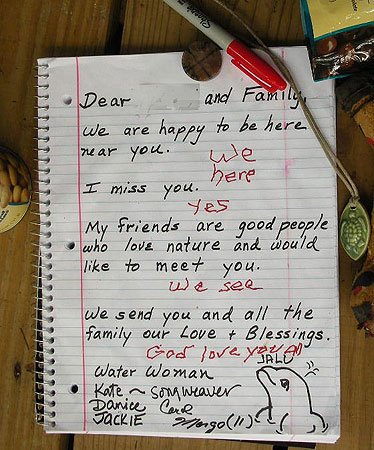 Dear and Family,
We are happy to be here
near you.
We
here
I miss you.
yes
My friends are good people
who love nature and would
like to meet you.
We see
We send you and all the
family our Love + Blessings.
God love you all
JALU
Water Woman
Kate ~ Songweaver
Danice Card
JACKIE Margo (11)